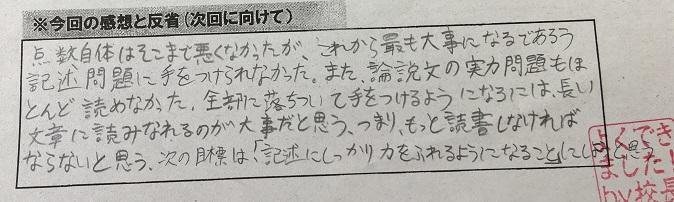 ※今回の感想と反省(次回に向けて)
点数自体はそこまで悪くなかったが、これから最も大事になるであろう
記述問題に手をつけられなかった。また、論説文の実力問題もほ
とんど読めなかった。全部に落ちついて手をつけるようになるには、長い
文章に読みなれるのが大事だと思う、つまり、もっと読書しなければ
ならないと思う、次の目標は、「記述にしっかり力をふれるようになること」にしようと思う
よくでき
ました!
by校長